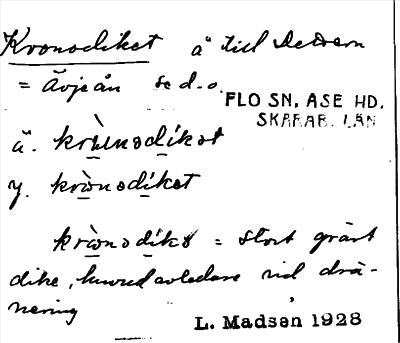 Kronodiket å till Dettern
= Ävjeån se d.o.
FLO SN, ÅSE HD.
SKARAB. LÄN
ä. kròunodíkət
y. krònodíkət
kròinodíkə = stort grävt
dike, huvudavledare vid drä-
nering
L. Madsen 1928